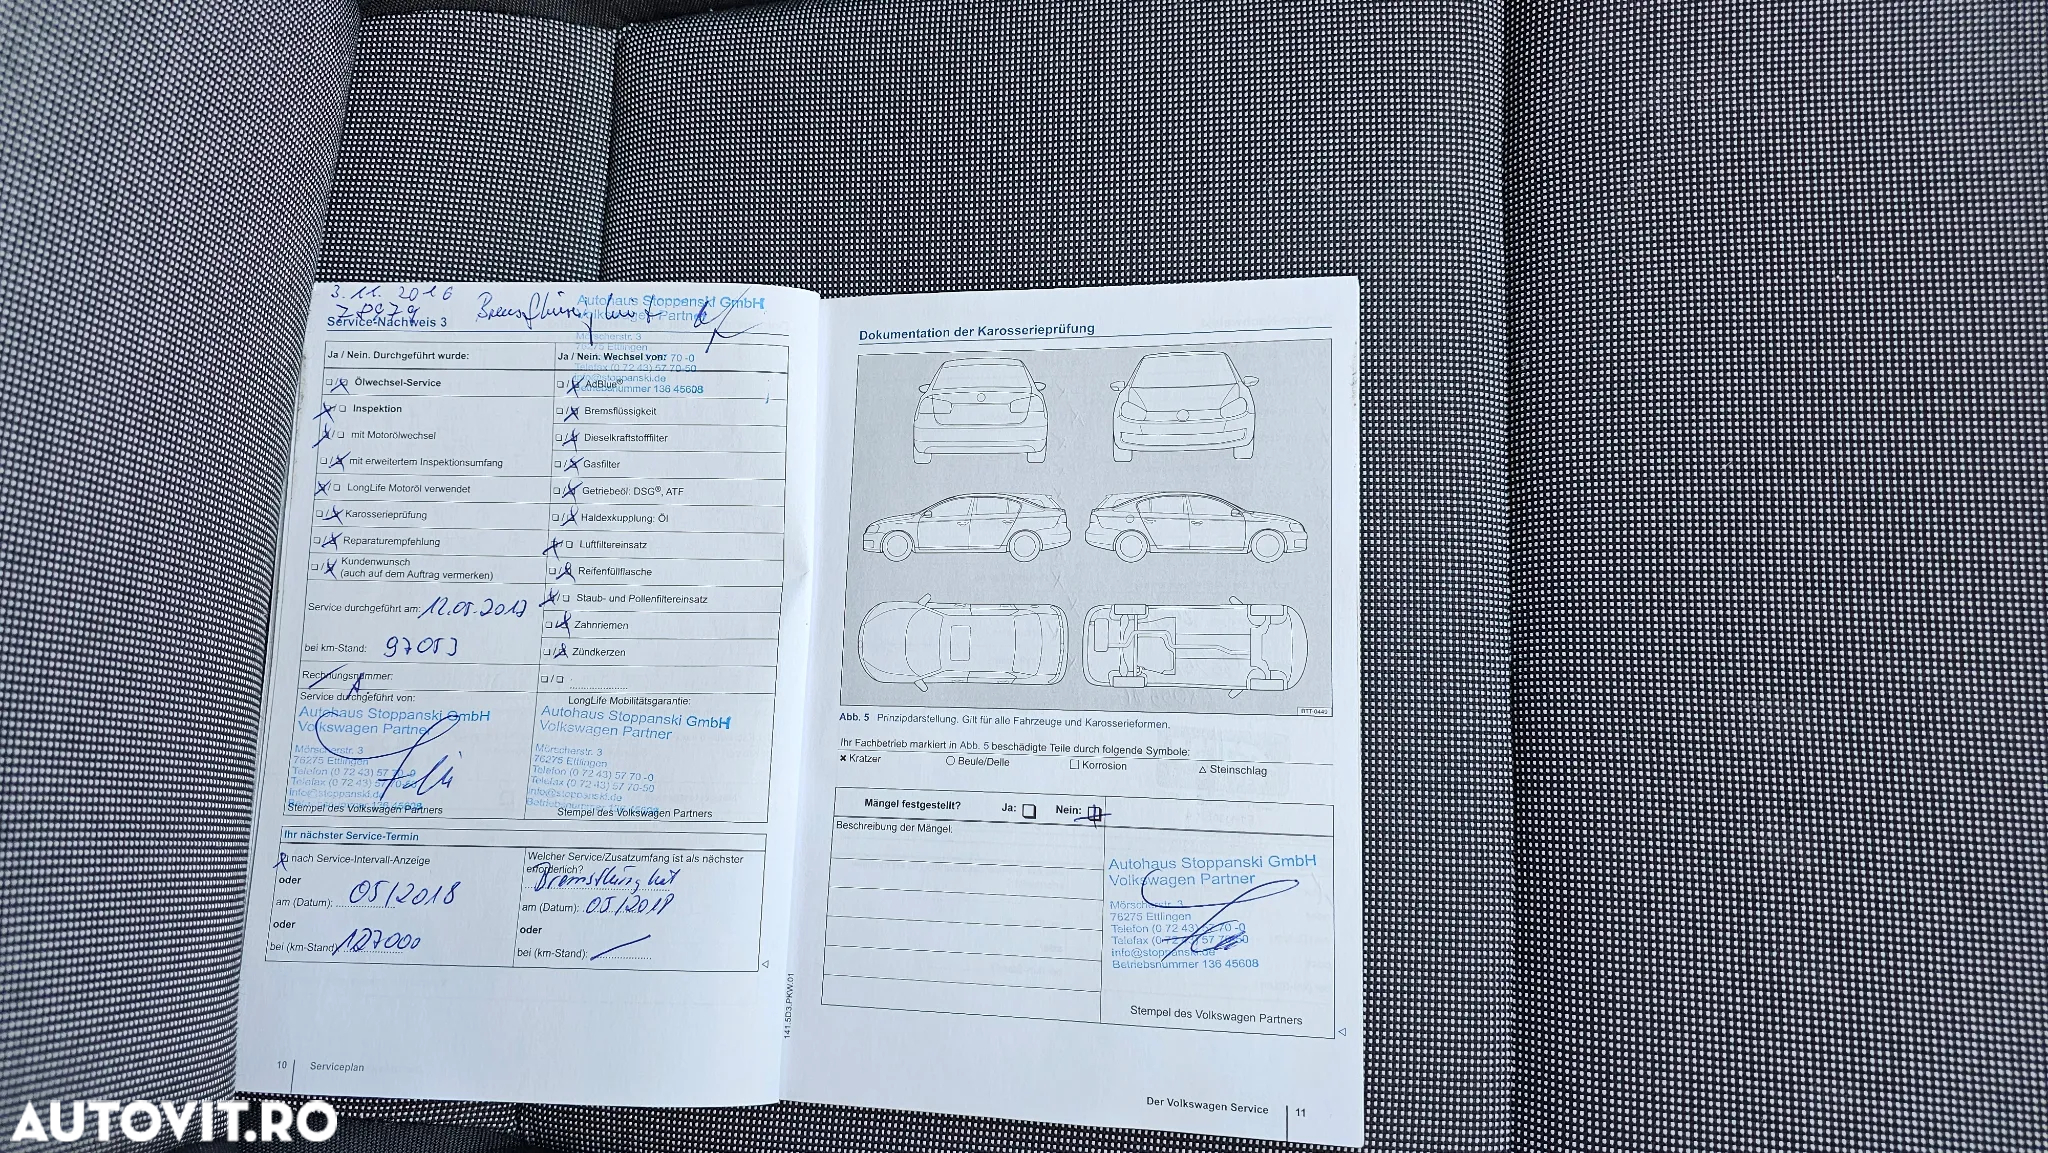 3.11.2016
Bremsflüssigkeit
Autohaus Stoppanski GmbH
Volkswagen Partner
Service-Nachweis 3
Mörscherstr. 3
76275 Ettlingen
70 -0
Telefax (0 72 43) 57 70-50
info@stoppanski.de
Betriebsnummer 136 45608
Ja / Nein. Durchgeführt wurde:
Ölwechsel-Service
Inspektion
mit Motorölwechsel
mit erweitertem Inspektionsumfang
LongLife Motoröl verwendet
Karosserieprüfung
Reparaturempfehlung
Kundenwunsch
(auch auf dem Auftrag vermerken)
Service durchgeführt am: 12.05.2017
bei km-Stand: 97053
Rechnungsnummer:
Service durchgeführt von:
Autohaus Stoppanski GmbH
Volkswagen Partner
Mörscherstr. 3
76275 Ettlingen
Telefon (0 72 43) 57 70 -0
Telefax (0 72 43) 57 70-50
info@stoppanski.de
Betriebsnummer 136 45608
Stempel des Volkswagen Partners
Ja / Nein. Wechsel von:
AdBlue®
Bremsflüssigkeit
Dieselkraftstofffilter
Gasfilter
Getriebeöl: DSG®, ATF
Haldexkupplung: Öl
Luftfiltereinsatz
Reifenfüllflasche
Staub- und Pollenfiltereinsatz
Zahnriemen
Zündkerzen
LongLife Mobilitätsgarantie:
Autohaus Stoppanski GmbH
Volkswagen Partner
Mörscherstr. 3
76275 Ettlingen
Telefon (0 72 43) 57 70 -0
Telefax (0 72 43) 57 70-50
info@stoppanski.de
Betriebsnummer 136 45608
Stempel des Volkswagen Partners
Ihr nächster Service-Termin
nach Service-Intervall-Anzeige
oder
am (Datum): 05/2018
oder
bei (km-Stand) 127000
Welcher Service/Zusatzumfang ist als nächster
erforderlich?
Bremsflüssigkeit
am (Datum): 05/2018
oder
bei (km-Stand):
141.5D3.PKW.01
10 Serviceplan
Dokumentation der Karosserieprüfung
BTT-0449
Abb. 5 Prinzipdarstellung. Gilt für alle Fahrzeuge und Karosserieformen.
Ihr Fachbetrieb markiert in Abb. 5 beschädigte Teile durch folgende Symbole:
Kratzer Beule/Delle Korrosion Steinschlag
Mängel festgestellt? Ja: Nein:
Beschreibung der Mängel:
Autohaus Stoppanski GmbH
Volkswagen Partner
Mörscherstr. 3
76275 Ettlingen
Telefon (0 72 43) 57 70 -0
Telefax (0 72 43) 57 70-50
info@stoppanski.de
Betriebsnummer 136 45608
Stempel des Volkswagen Partners
Der Volkswagen Service 11
AUTOVIT.RO